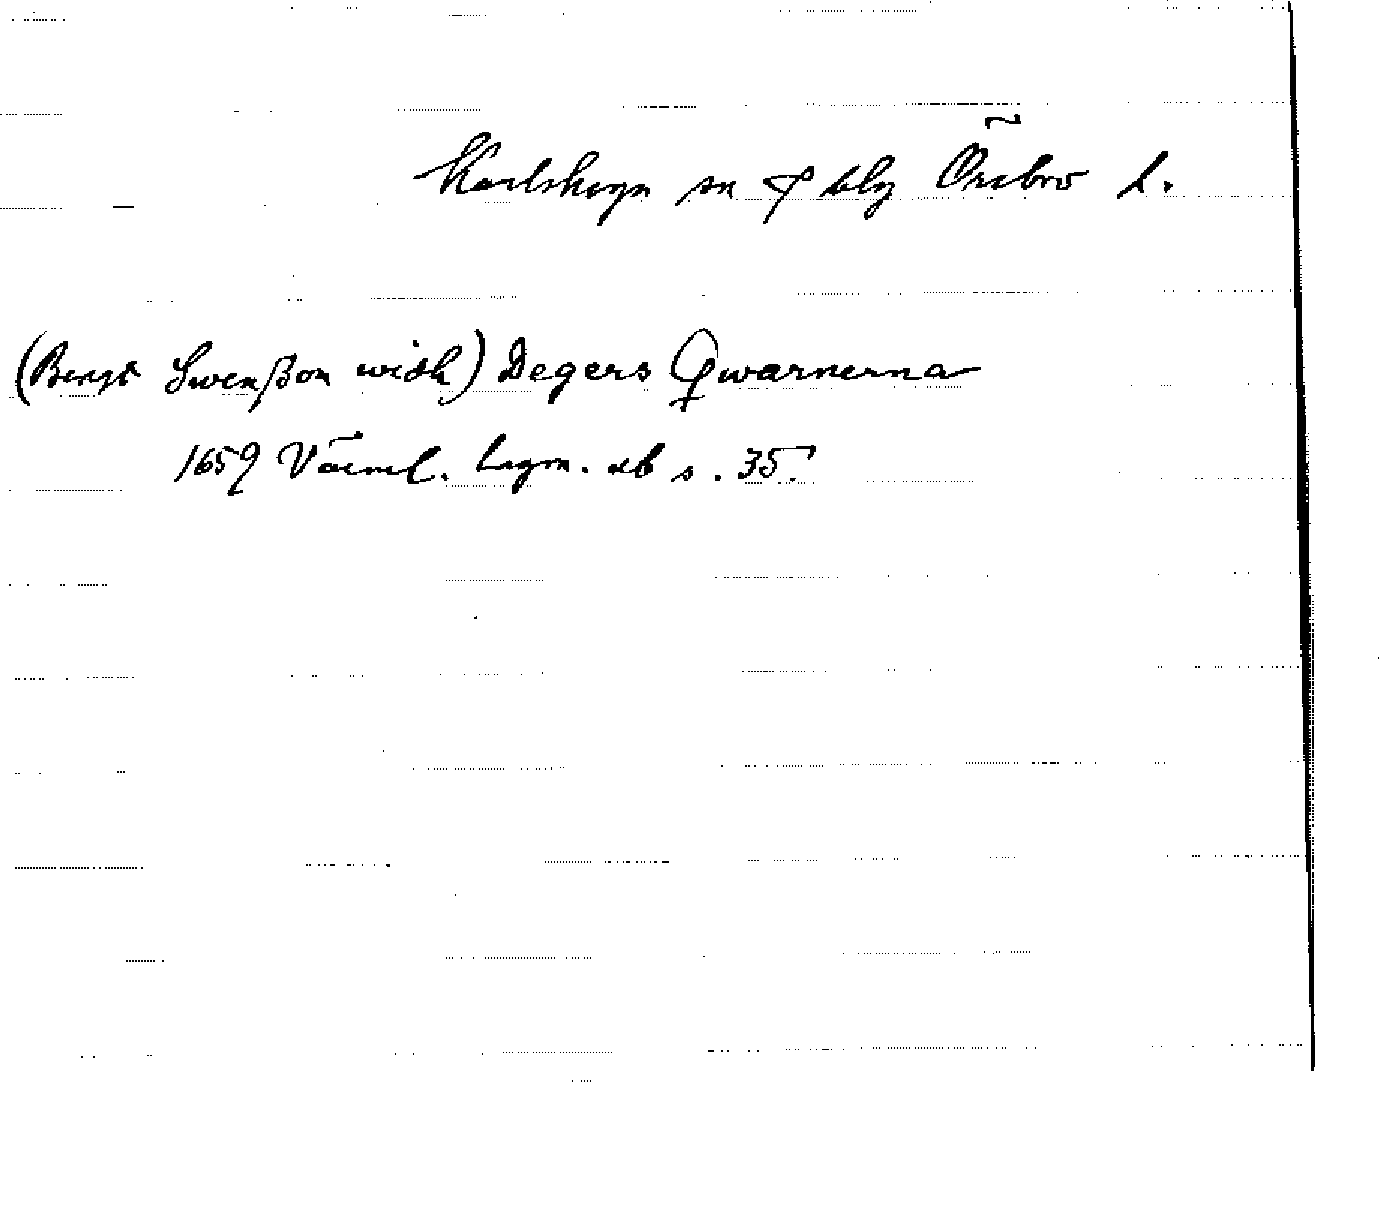 Karlskoga sn & blg Örebro l.
(Bengt Swenßon widh) Degers Qwarnerna
1659 Värml. lagm. db s. 35.